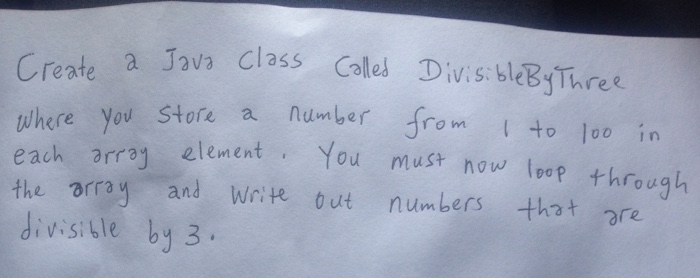 Create a Java Class Called DivisibleByThree
where you store a number from 1 to 100 in
each array element. You must now loop through
the array and write out numbers that are
divisible by 3.